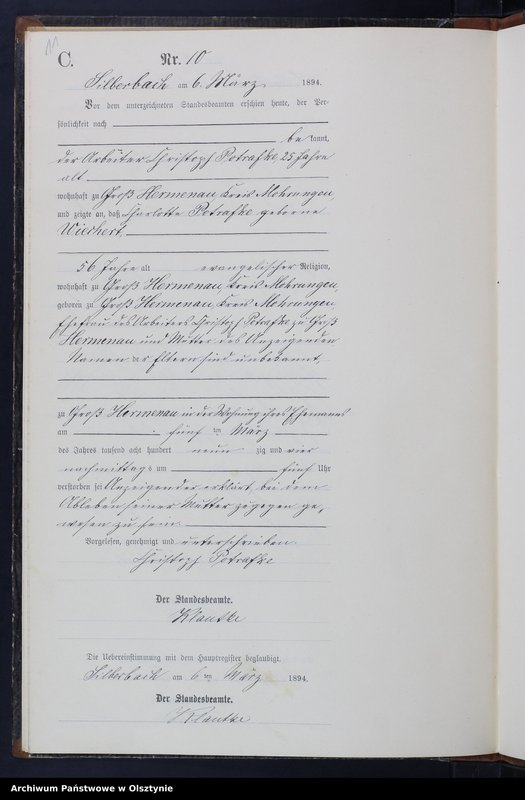 11
C.
Nr. 10
Silberbach am 6. März 1894.
Vor dem unterzeichneten Standesbeamten erschien heute, der Per-
sönlichkeit nach
be kannt,
der Arbeiter Christoph Potrafke, 25 Jahre
alt
wohnhaft zu Groß Hermenau, Kreis Mohrungen,
und zeigte an, daß Charlotte Potrafke geborne
Wichert,
56 Jahre alt evangelischer Religion,
wohnhaft zu Groß Hermenau, Kreis Mohrungen,
geboren zu Groß Hermenau, Kreis Mohrungen
Ehefrau des Arbeiters Christoph Potrafke zu Groß
Hermenau und Mutter des Anzeigenden
Namen der Eltern sind unbekannt,
zu Groß Hermenau in der Wohnung ihres Ehemannes
am fünf ten März
des Jahres tausend acht hundert neun zig und vier
nachmittags um fünf Uhr
verstorben sei Anzeigender erklärt, bei dem
Ableben seiner Mutter zugegen ge,
wesen zu sein.
Vorgelesen, genehmigt und unterschrieben
Christoph Potrafke
Der Standesbeamte.
Klautke
Die Uebereinstimmung mit dem Hauptregister beglaubigt.
Silberbach am 6ten März 1894.
Der Standesbeamte.
Klautke
Archiwum Państwowe w Olsztynie